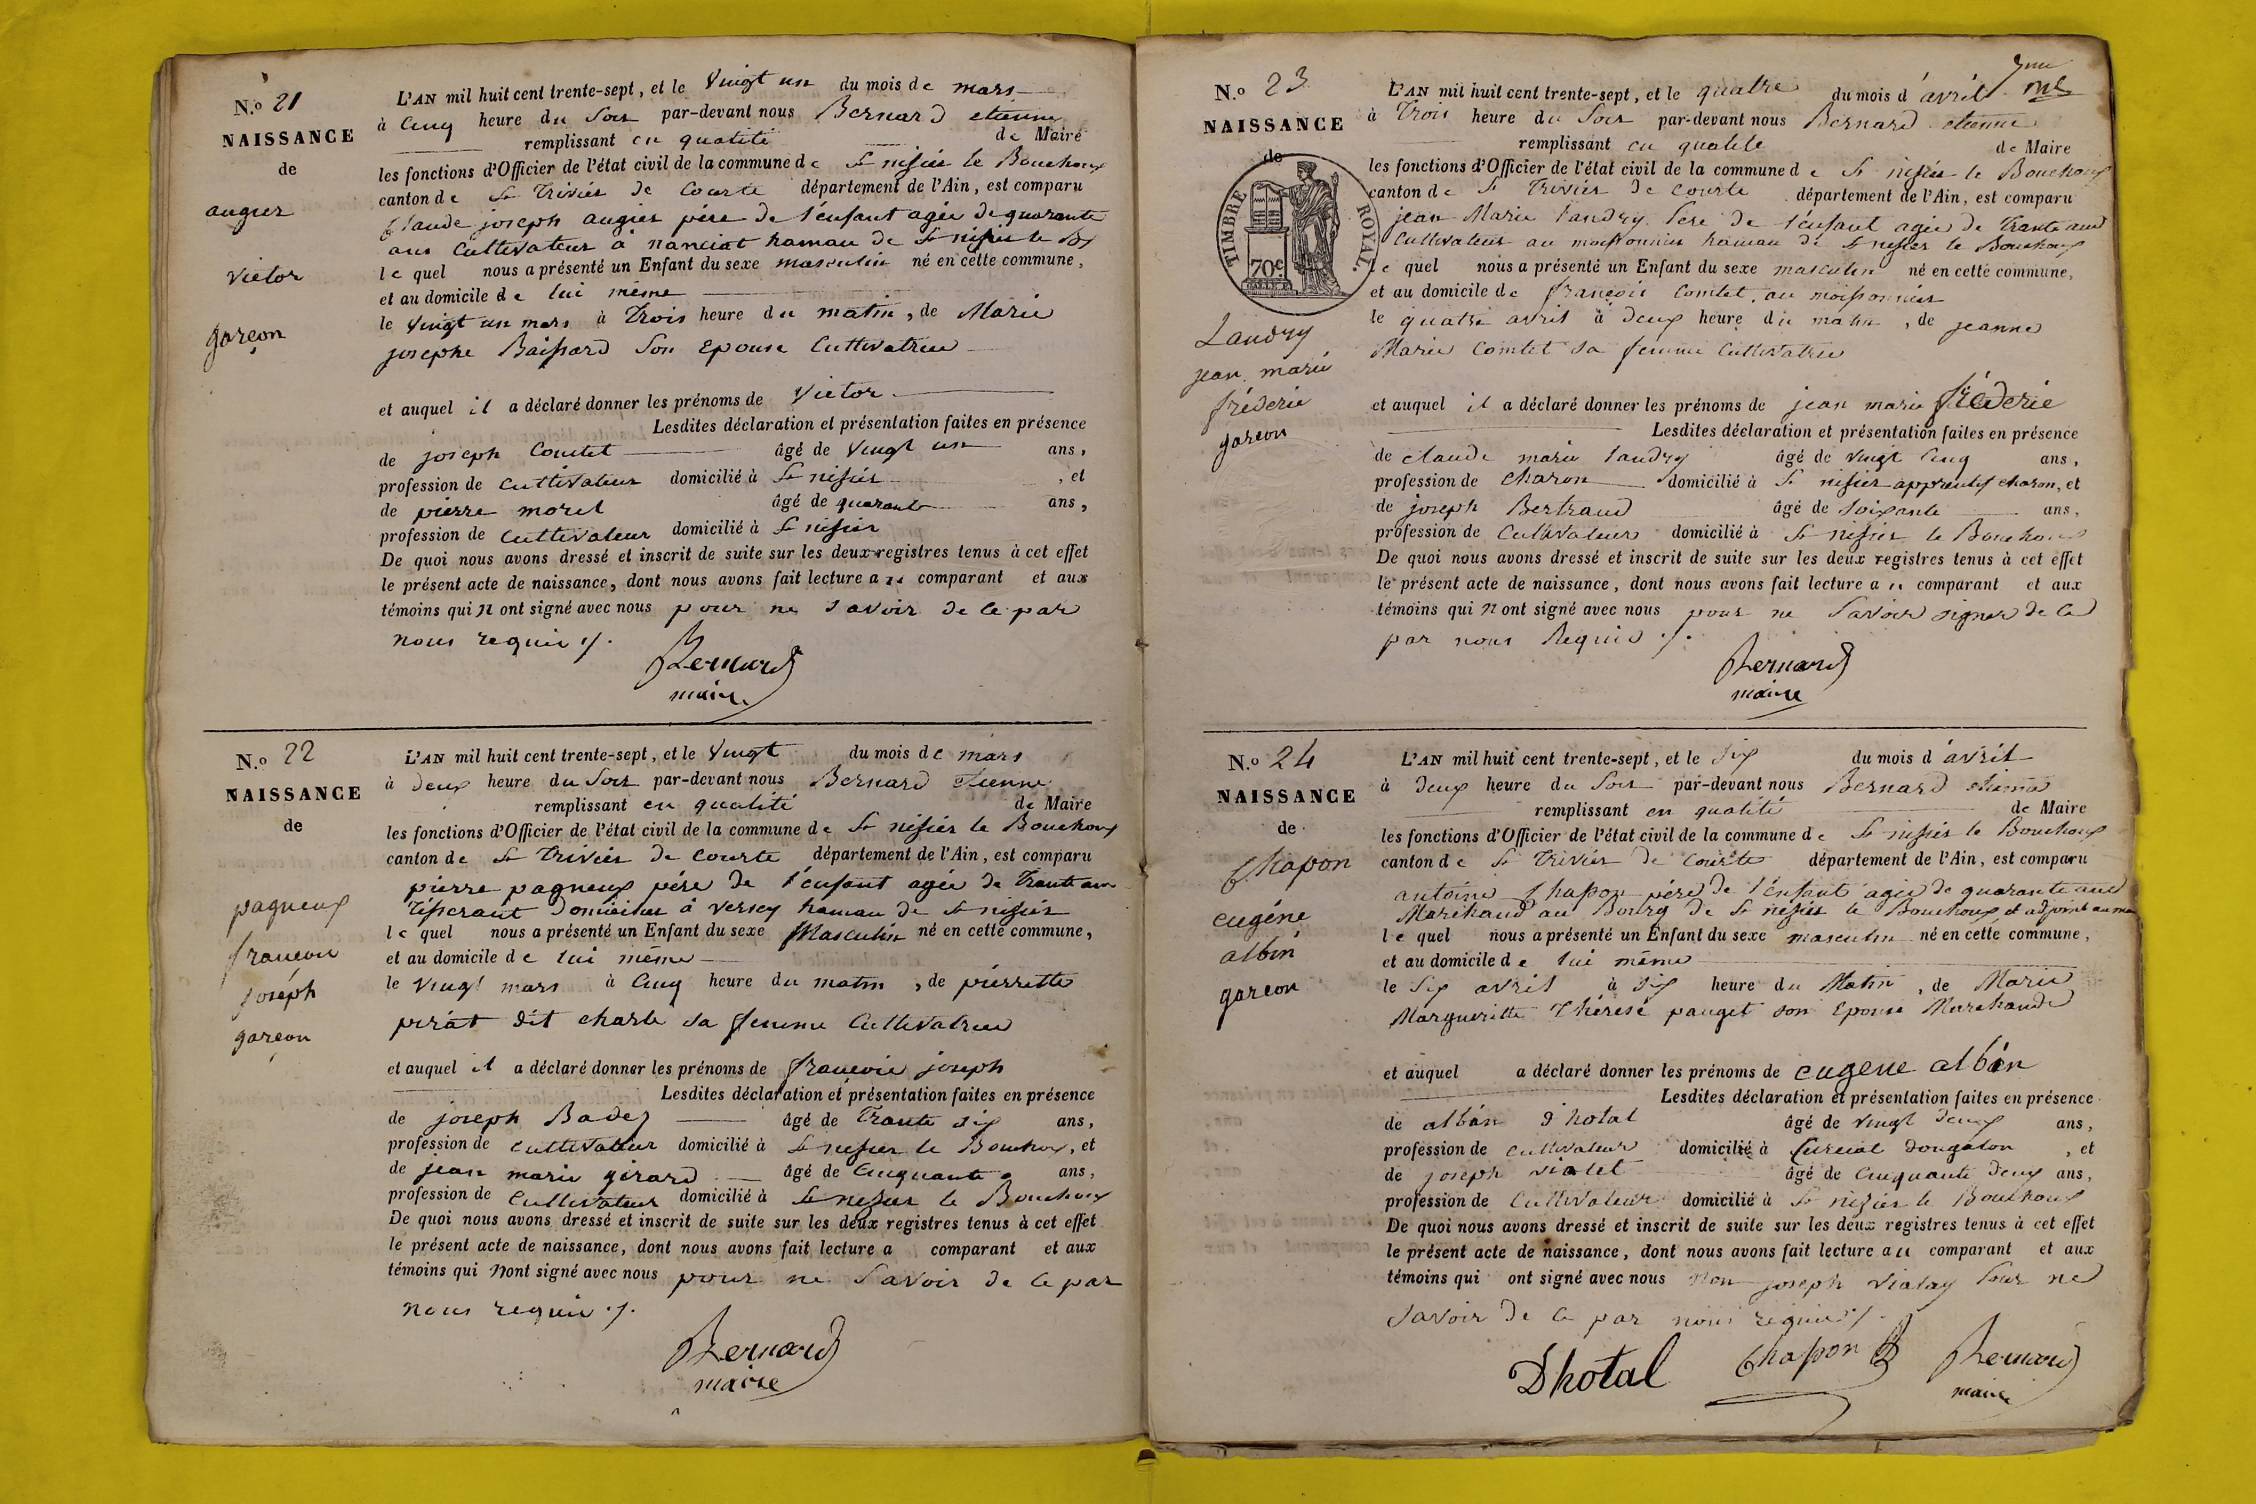 N.o 21
NAISSANCE
de
augier
victor
garçon
L'AN mil huit cent trente-sept, et le vingt un du mois de mars
à cinq heure du soir par-devant nous Bernard etienne
remplissant en qualité de Maire
les fonctions d'Officier de l'état civil de la commune de St nisier le Bouchoux
canton de St Trivier de Courte département de l'Ain, est comparu
Claude joseph augier père de l'enfant agée de quarante
ans Cultivateur à nanciat hamau de St nisier le Bx
le quel nous a présenté un Enfant du sexe masculin né en cette commune,
et au domicile de lui même
le vingt un mars à Trois heure du matin, de Marie
josephe Baissard son Epouse Cultivatrice
et auquel il a déclaré donner les prénoms de Victor
Lesdites déclaration et présentation faites en présence
de joseph Comtet âgé de vingt un ans,
profession de cultivateur domicilié à St nisier, et
de pierre morel âgé de quarante ans,
profession de cultivateur domicilié à St nisier
De quoi nous avons dressé et inscrit de suite sur les deux registres tenus à cet effet
le présent acte de naissance, dont nous avons fait lecture au comparant et aux
témoins qui n ont signé avec nous pour ne savoir de ce par
nous requis ./.
Bernard
maire
N.o 22
NAISSANCE
de
pagneux
françois
joséph
garçon
L'AN mil huit cent trente-sept, et le vingt du mois de mars
à deux heure du soir par-devant nous Bernard Etienne
remplissant en qualité de Maire
les fonctions d'Officier de l'état civil de la commune de St nisier le Bouchoux
canton de St Trivier de courte département de l'Ain, est comparu
pierre pagneux père de l'enfant agée de Trante ans
Tisserant domicilier à versey hamau de St nisier
le quel nous a présenté un Enfant du sexe Masculin né en cette commune,
et au domicile de lui même
le vingt mars à cinq heure du matin, de pierrette
perât dit charle sa femme Cultivatrice
et auquel il a déclaré donner les prénoms de françois joseph
Lesdites déclaration et présentation faites en présence
de joseph Badez âgé de Trante six ans,
profession de cultivateur domicilié à St nisier le Bouchoux, et
de jean marie girard âgé de Cinquante ans,
profession de Cultivateur domicilié à St nisier le Bouchoux
De quoi nous avons dressé et inscrit de suite sur les deux registres tenus à cet effet
le présent acte de naissance, dont nous avons fait lecture a comparant et aux
témoins qui n ont signé avec nous pour ne savoir de ce par
nous requis ./.
Bernard
maire
N.o 23
NAISSANCE
de
TIMBRE ROYAL.
70c
Landry
jean marie
fréderic
garcon
L'AN mil huit cent trente-sept, et le quatre du mois d'avril
à Trois heure du soir par-devant nous Bernard etienne
remplissant en qualité de Maire
les fonctions d'Officier de l'état civil de la commune de St nisier le Bouchoux
canton de St Trivier de courte département de l'Ain, est comparu
jean Marie Landry Père de l'énfant agée de Trante ans
Cultivateur au moissonnier hamau de St nisier le Bouchoux
le quel nous a présenté un Enfant du sexe masculin né en cette commune,
et au domicile de françois Comtet au moissonnier
le quatre avril à deux heure du matin, de jeanne
Marie Comtet sa femme Cultivatrice
et auquel il a déclaré donner les prénoms de jean marie fréderic
Lesdites déclaration et présentation faites en présence
de claude marie Landry âgé de vingt cinq ans,
profession de charon domicilié à St nisier apprentif charon, et
de joseph Bertrand âgé de soixante ans,
profession de Cultivateur domicilié à St nisier le Bouchoux
De quoi nous avons dressé et inscrit de suite sur les deux registres tenus à cet effet
le présent acte de naissance, dont nous avons fait lecture au comparant et aux
témoins qui n ont signé avec nous pour ne savoir signer de ce
par nous Requis ./.
Bernard
maire
N.o 24
NAISSANCE
de
Chapon
eugéne
albin
garcon
L'AN mil huit cent trente-sept, et le six du mois d'avril
à deux heure du soir par-devant nous Bernard etienne
remplissant en qualité de Maire
les fonctions d'Officier de l'état civil de la commune de St nisier le Bouchoux
canton de St Trivier de Courte département de l'Ain, est comparu
antoine Chapon père de l'énfant agée de quarante ans
Marchand au Bourg de St nisier le Bouchoux et adjoint au
le quel nous a présenté un Enfant du sexe masculin né en cette commune,
et au domicile de lui même
le six avril à six heure du Matin, de Marie
Margueritte Thérésé pauget son Epouse Marchande
et auquel a déclaré donner les prénoms de eugene albin
Lesdites déclaration et présentation faites en présence
de albin d'hotal âgé de vingt deux ans,
profession de cultivateur domicilié à Curciat dongalon, et
de joseph vialet âgé de Cinquante deux ans,
profession de Cultivateur domicilié à St nisier le Bouchoux
De quoi nous avons dressé et inscrit de suite sur les deux registres tenus à cet effet
le présent acte de naissance, dont nous avons fait lecture au comparant et aux
témoins qui ont signé avec nous non joseph vialay pour ne
savoir de ce par nous requis ./.
Dhotal Chapon Bernard
maire